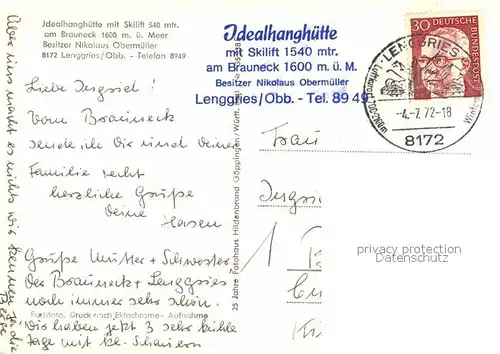 Idealhanghütte mit Skilift 540 mtr.
am Brauneck 1600 m. ü. Meer
Besitzer Nikolaus Obermüller
8172 Lenggries/Obb. - Telefon 8949
Idealhanghütte
mit Skilift 1540 mtr.
am Brauneck 1600 m. ü. M.
Besitzer Nikolaus Obermüller
Lenggries/Obb. - Tel. 89 49
30 DEUTSCHE BUNDESPOST
LENGGRIES
Luftkurort 700-1700
-4.-7.72-18
8172
Liebe
Vom Brauneck
sende ich dir und deiner
Familie recht
herzliche Grüße
Deine
Hasen
Grüße Mutter + Schwester
Der Brauneck + Lenggries
noch immer sehr schön.
Farbfoto, Druck nach Ektachrome - Aufnahme
Wir haben jetzt 3 sehr kühle
tage mit kl. Schauern
Aber uns macht es nichts wir kennen ja die
Berge
25 Jahre Fotohaus Hildenbrand Göppingen/Württ.
Frau
privacy protection
Datenschutz